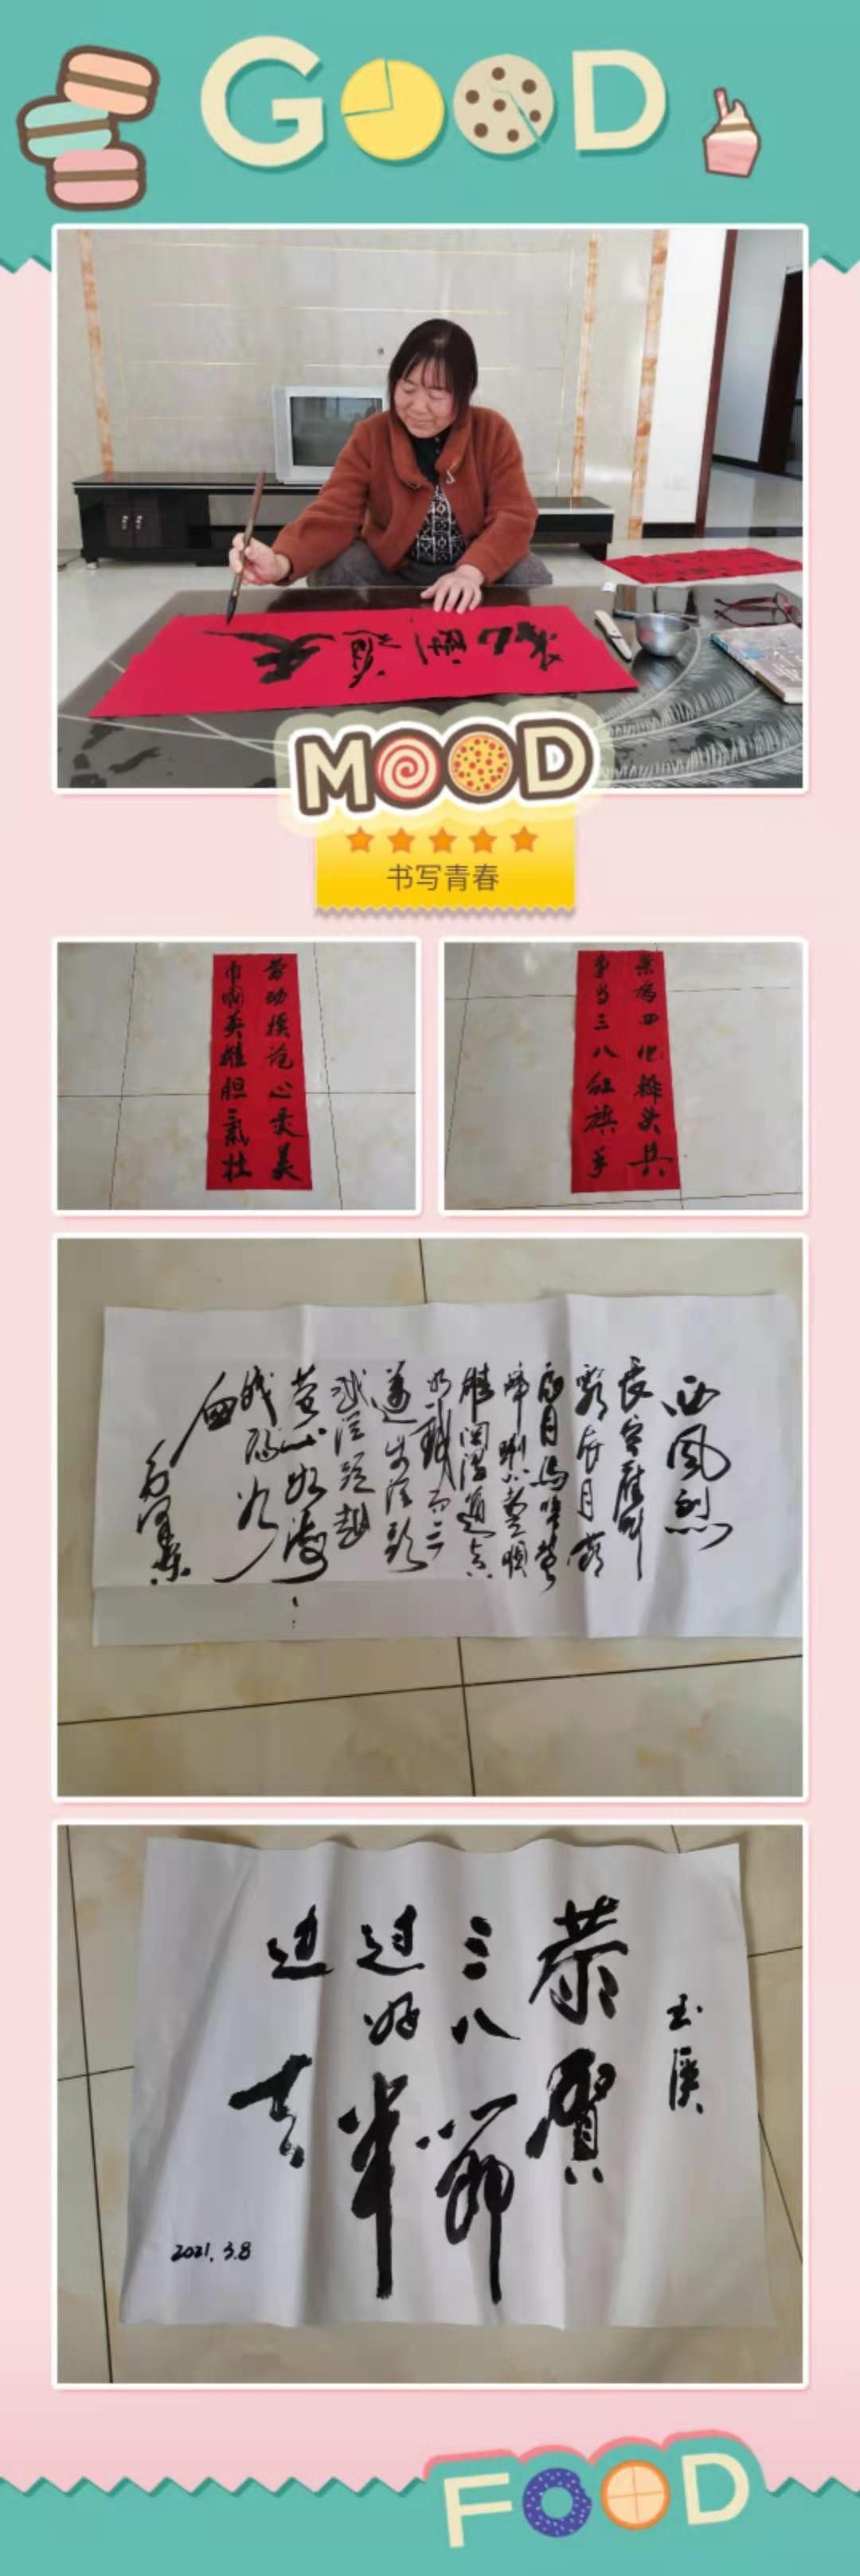 GOOD
MOOD
书写青春
劳动模范心灵美
巾帼英雄胆气壮
业为四化排头兵
争当三八红旗手
西风烈
长空雁叫
霜晨月霜
晨月马蹄声
碎喇叭声咽
雄关漫道真
如铁而今
迈步从头
越从头越
苍山如海
残阳如
血
毛泽东
玉溪
恭贺
三八节
过好半
边天
2021.3.8
FOOD